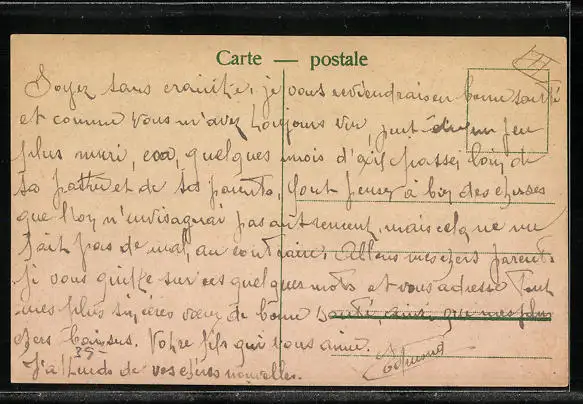 Carte — postale
Soyez sans crainte, je vous reviendrais en bonne santé
et comme vous m'avez toujours vu, peut être un peu
plus muri, car, quelques mois d'exil passé, loin de
sa patrie et de ses parents, font penser à bien des choses
que l'on n'envisageait pas autrement, mais cela ne me
fait pas de mal, au contraire. Allons mes chers parents
je vous quitte sur ces quelques mots et vous adresse Tout
mes plus sincères vœux de bonne santé, ainsi que mes plus
chers baisers. Votre fils qui vous aime.
39
J'attends de vos chères nouvelles.